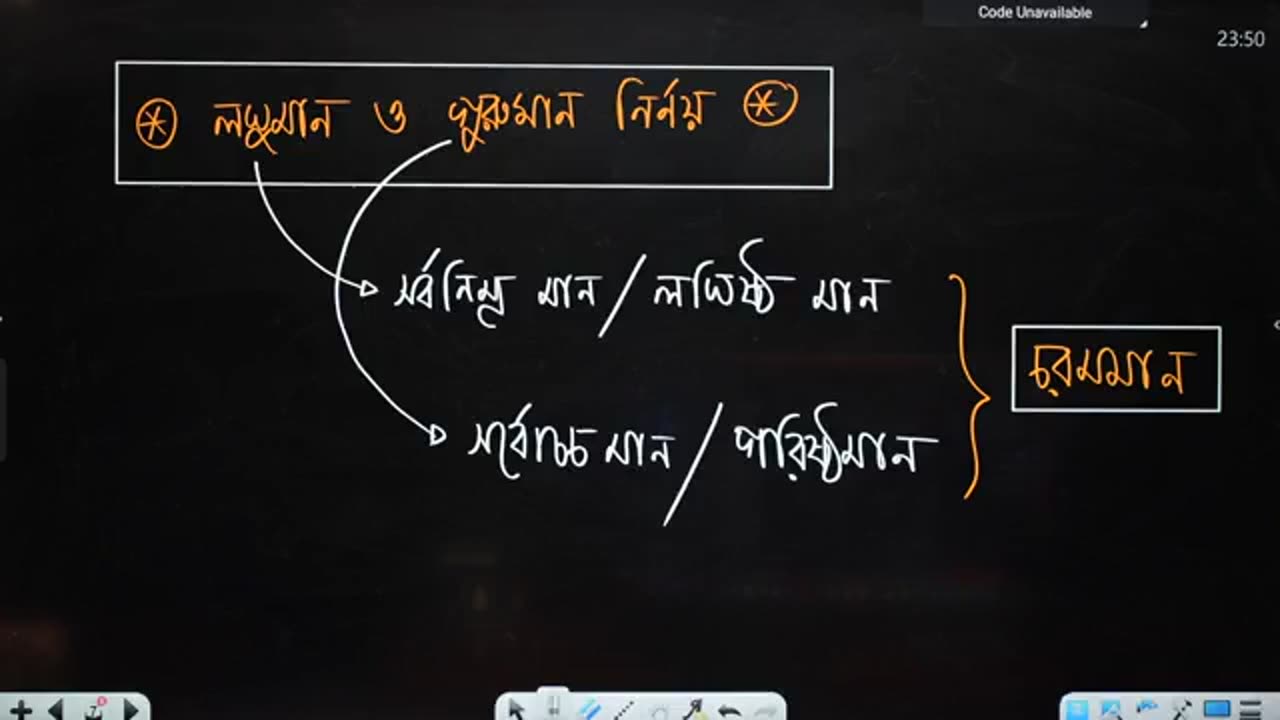 Code Unavailable
23:50
⊛ লঘুমান ও গুরুমান নির্নয় ⊛
সর্বনিম্ন মান / লঘিষ্ঠ মান
চরমমান
সর্বোচ্চ মান / গরিষ্ঠমান